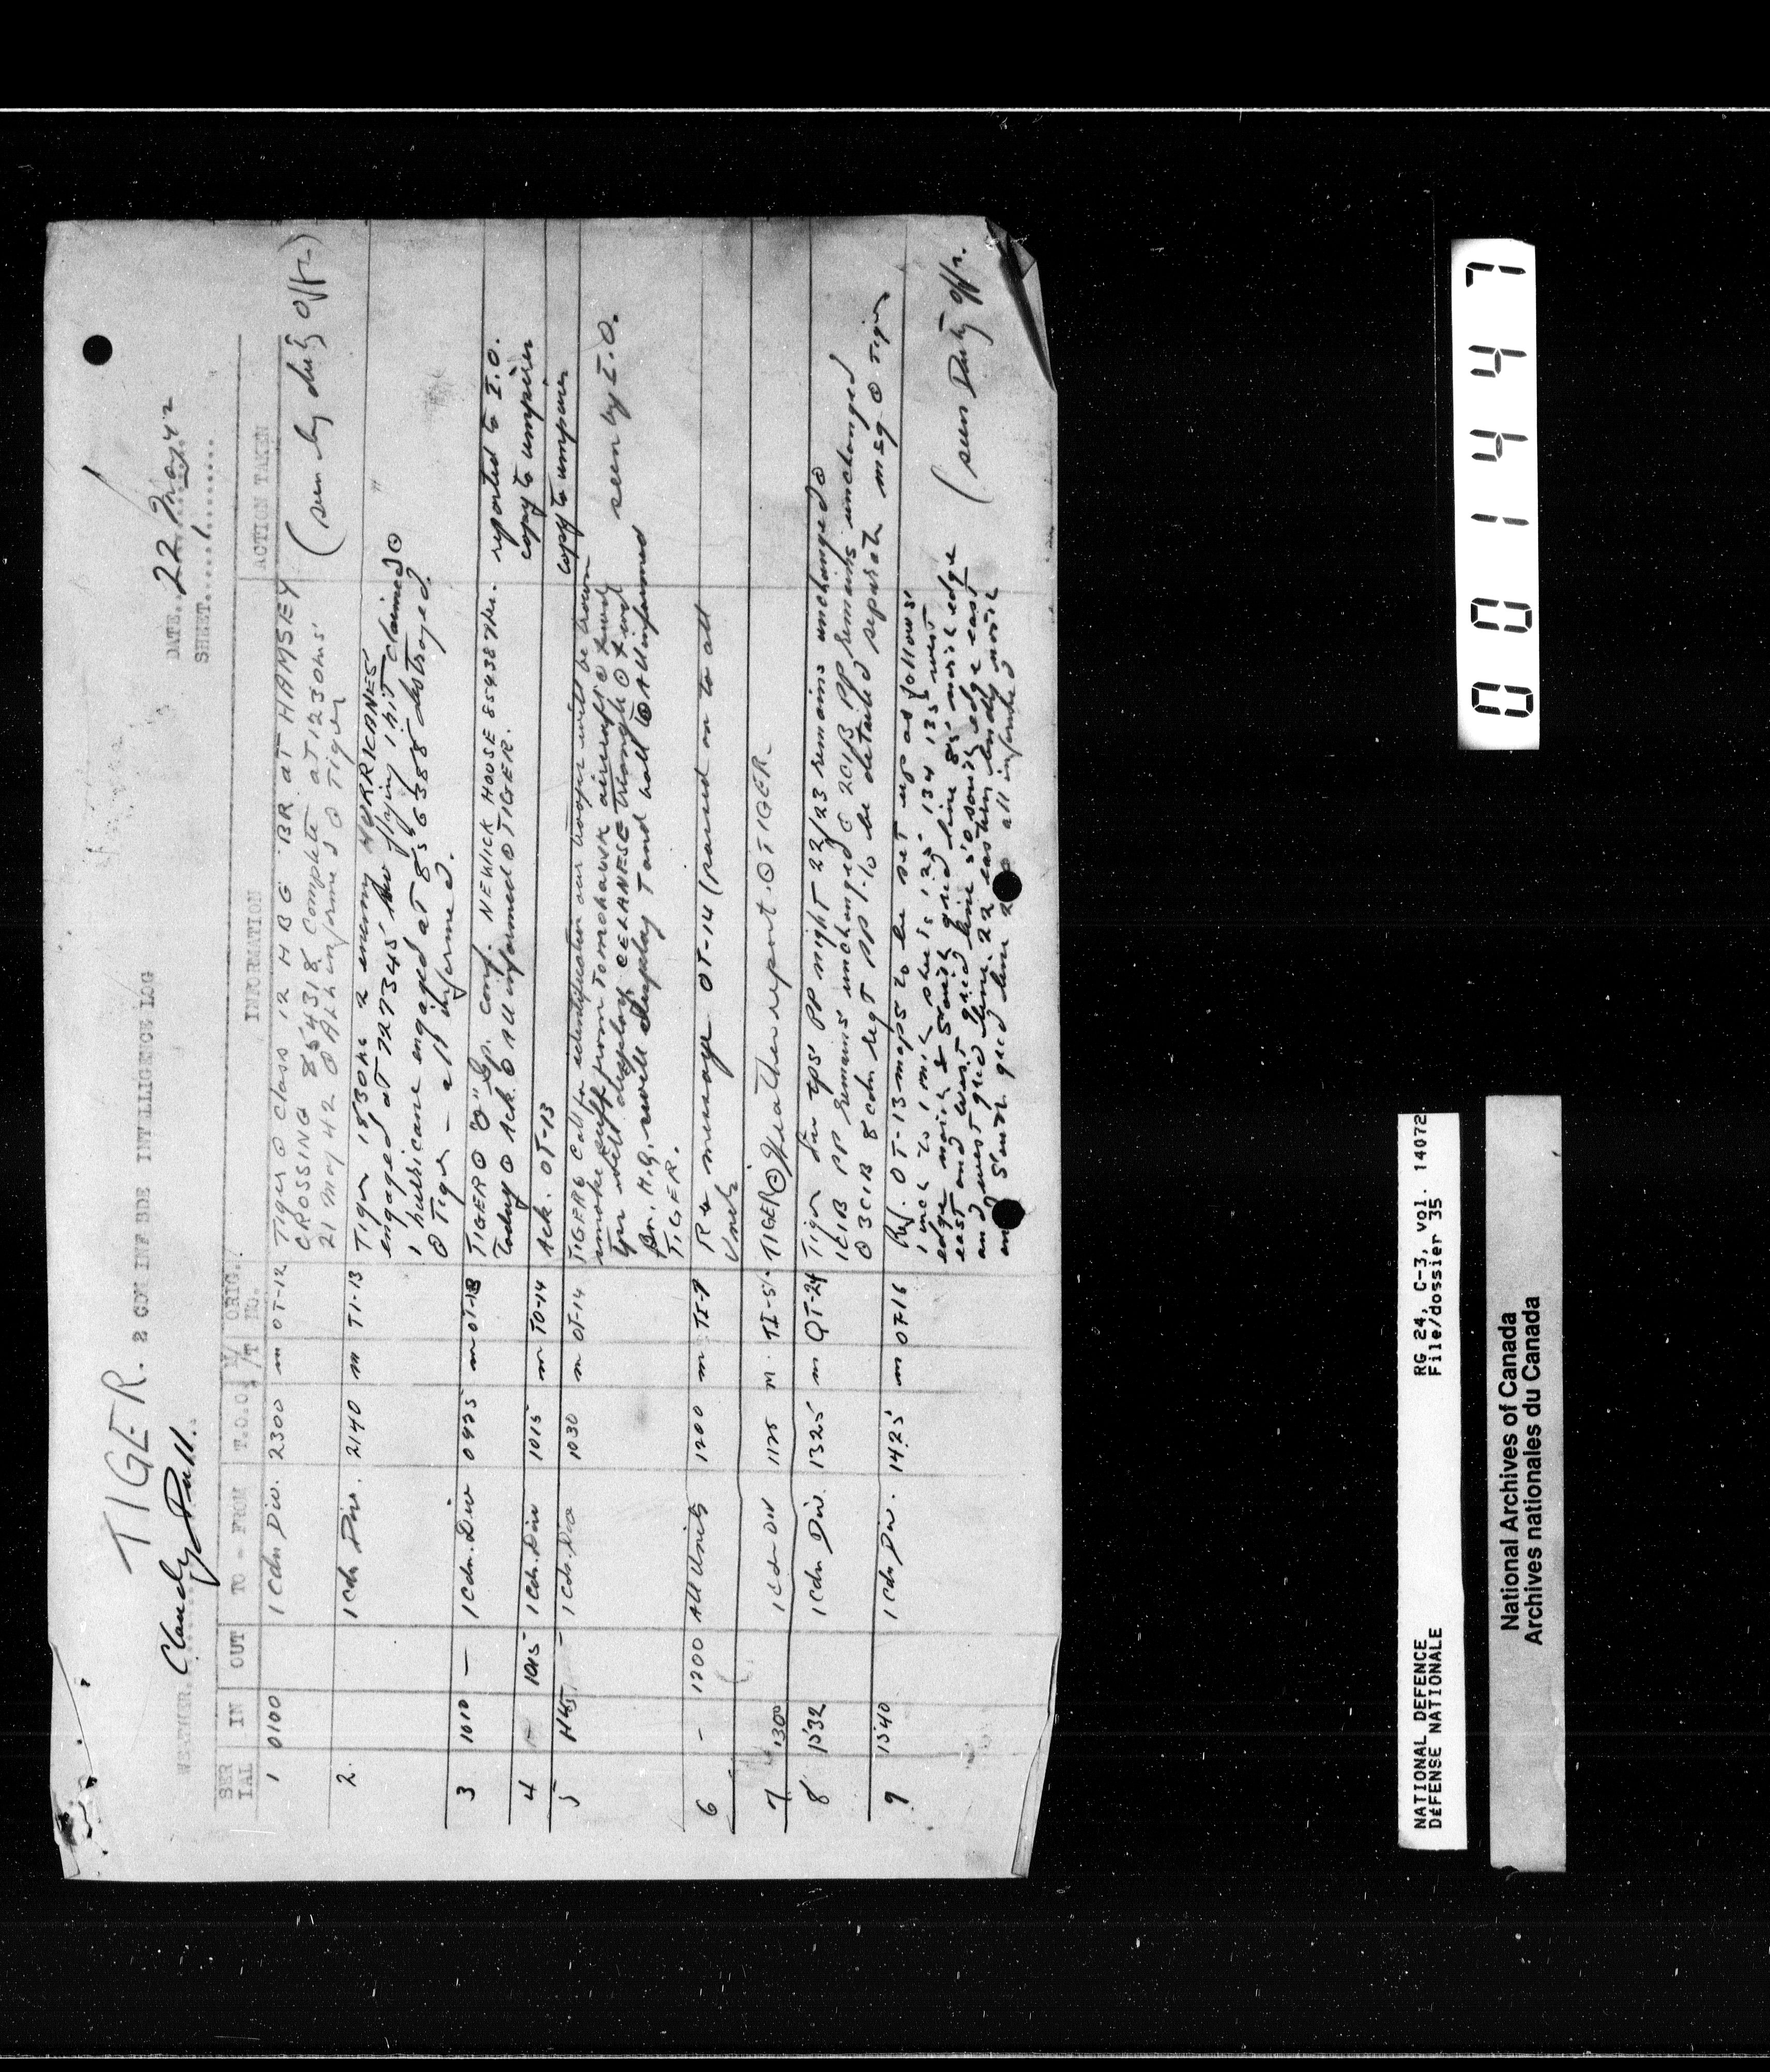 TIGER.
2 CDN INF BDE INTILLIGENCE LOG
DATE..22 May 42
SHEET.....1.......
WEATHER. Cloudy Dull.
SER IAL IN OUT TO - FROM T.O.O. W/T ORIG. No. INFORMATION ACTION TAKEN
1 0100 1 Cdn Div. 2300 m OT-12 Tiger ⊙ Class 12 H B G BR. AT HAMSEY
CROSSING 854318 complete AT 1230 hrs
21 May 42 ⊙ All informed ⊙ Tiger
(seen by duty offr)
2. 1 Cdn Div. 2140 m TI-13 Tiger 1530 hrs 2 enemy HURRICANES
engaged at 727345 flying 1 hit claimed ⊙
1 hurricane engaged at 856388 destroyed.
⊙ Tiger - all informed.
"
3 1010 — 1 Cdn. Div 0925 m OT-13 TIGER ⊙ "O" Gp. conf. NEWICK HOUSE 854387 hrs.
today ⊙ Ack. ⊙ All informed ⊙ TIGER.
reported to I.O.
copy to umpires
4 — 1015 1 Cdn. Div 1015 m TO-14 Ack. OT-13
copy to umpires
5 — 1 Cdn. Div 1030 m OT-14 TIGER ⊙ Call for identification our troops will be
smoke puff from Tomohawk aircraft ⊙ fwd
tps will display CELANESE triangle ⊙ fwd
Bn. H.Q. will display T and wait ⊙ All informed
TIGER.
seen by I.O.
6 - 1200 All Units 1200 m TI-9 R 4 message OT-14 (passed on to all
Units
7 1300 1 Cdn Div 1125 m. TI-5. TIGER ⊙ Weather report. ⊙ TIGER.
8 1532 1 Cdn Div. 1325 m QT-24 Tiger Div PP night 22/23 remains unchanged ⊙
1CIB PP remains unchanged ⊙ 2CIB PP remains unchanged
⊙ 3CIB 8 cdn regt PP to be detailed separate msg ⊙ Tiger
9 1540 1 Cdn Div. 1425 m OT-16 Ref. OT-13 maps to be set up as follows
1 inch to 1 mile sheets 125 134 135 west
edge north & south grid line 85 north edge
east and west grid line 50 south edge east
and west grid line 22 eastern bndy north
and south grid line all informed
(seen Duty Offr.
0 0 1 4 4 7
NATIONAL DEFENCE RG 24, C-3, vol. 14072
DÉFENSE NATIONALE File/dossier 35
National Archives of Canada
Archives nationales du Canada